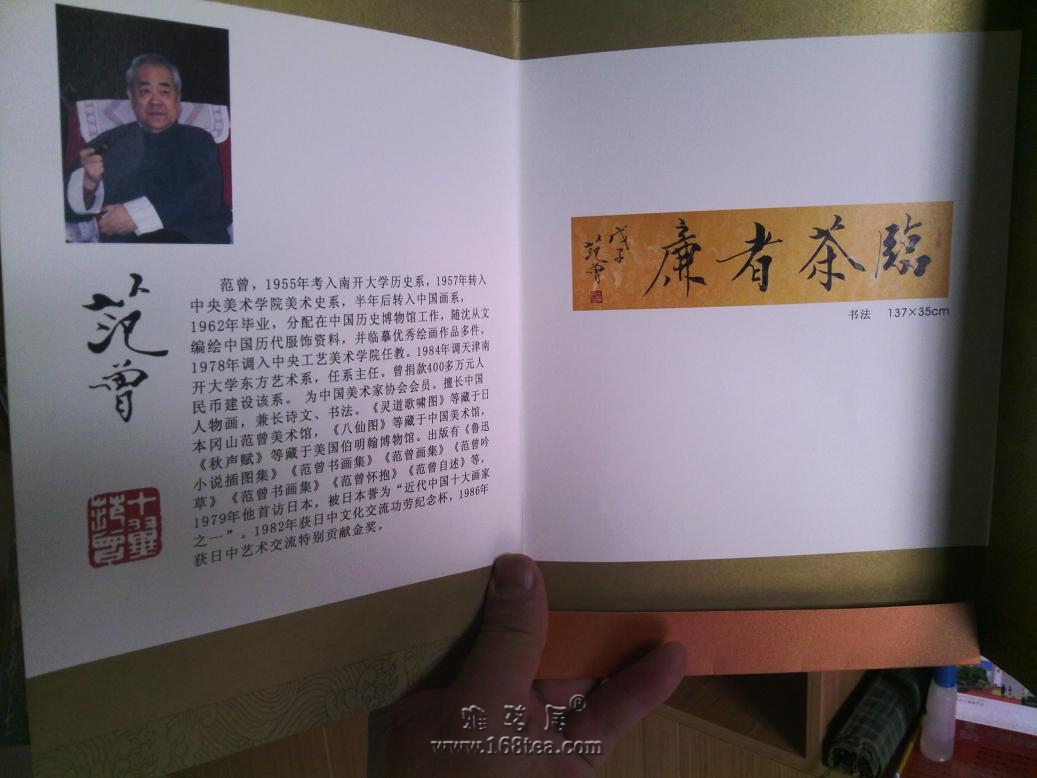 范曾
范曾，1955年考入南开大学历史系，1957年转入
中央美术学院美术史系，半年后转入中国画系，
1962年毕业，分配在中国历史博物馆工作，随沈从文
编绘中国历代服饰资料，并临摹优秀绘画作品多件。
1978年调入中央工艺美术学院任教。1984年调天津南
开大学东方艺术系，任系主任。曾捐款400多万元人
民币建设该系。 为中国美术家协会会员。擅长中国
人物画，兼长诗文、书法。《灵道歌啸图》等藏于日
本冈山范曾美术馆，《八仙图》等藏于中国美术馆，
《秋声赋》等藏于美国伯明翰博物馆。出版有《鲁迅
小说插图集》《范曾书画集》《范曾画集》《范曾吟
草》《范曾书画集》《范曾怀抱》《范曾自述》等。
1979年他首访日本，被日本誉为“近代中国十大画家
之一”。1982年获日中文化交流功劳纪念杯，1986年
获日中艺术交流特别贡献金奖。
臨茶者廉
戊子
范曾
书法 137×35cm
www.168tea.com